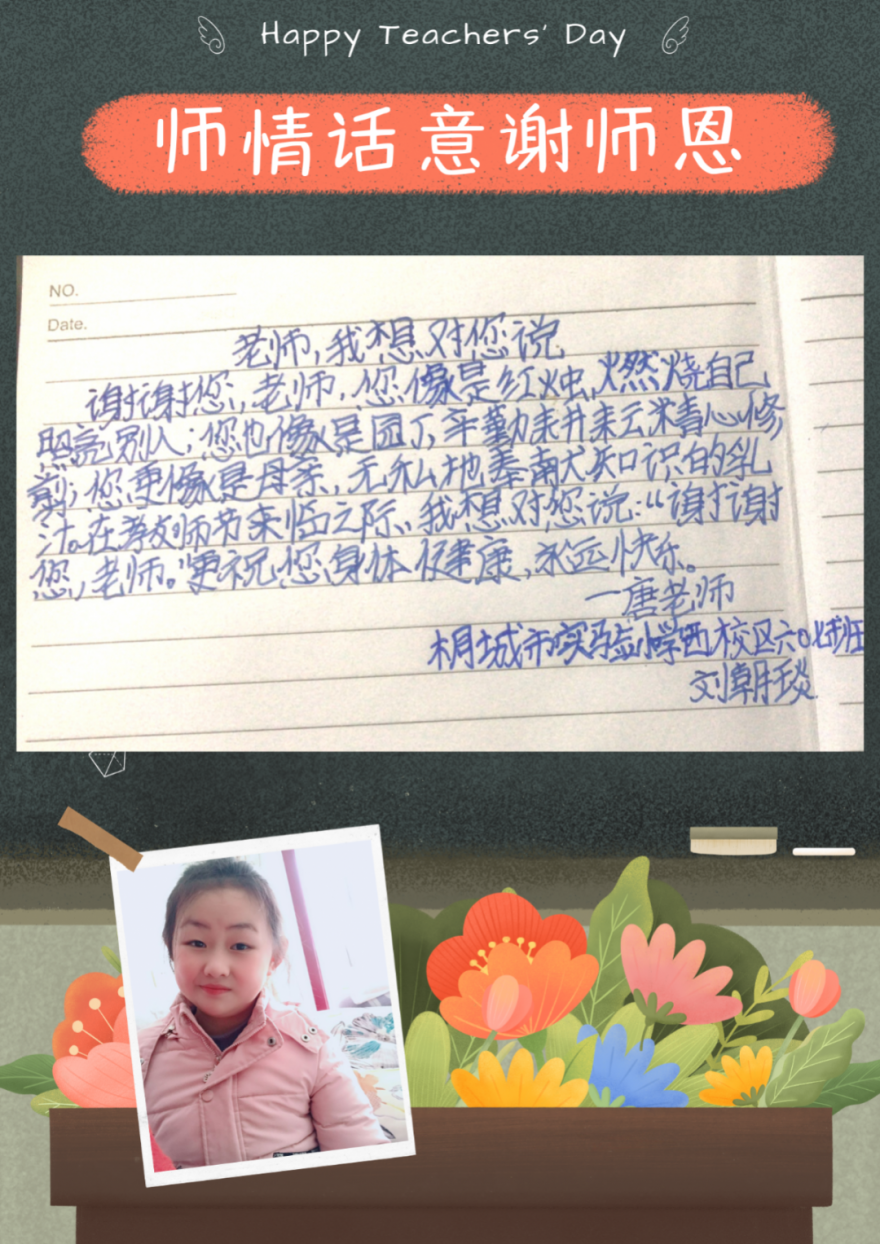 Happy Teachers' Day
师情话意谢师恩
NO.
Date.
老师,我想对您说
谢谢您,老师,您像是红烛,燃烧自己
照亮别人;您也像是园丁,辛勤耒升耒云米青心修
剪;您更像是母亲,无私地奉献知识的乳
汁。在教师节来临之际,我想对您说:“谢谢
您,老师。”更祝您身体健康,永远快乐。
—唐老师
桐城市实验小学西校区六0班
刘朝琰